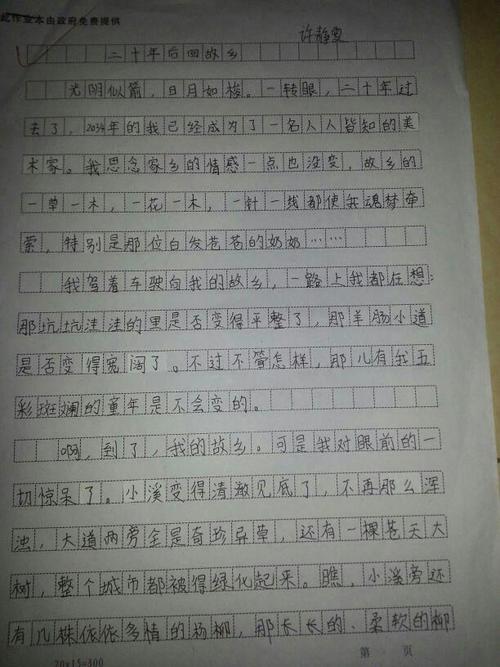 此作业本由政府免费提供
许静雯
二十年后回故乡
光阴似箭，日月如梭。一转眼，二十年过
去了，2034年的我已经成为了一名人人皆知的美
术家。我思念家乡的情感一点也没变，故乡的
一草一木，一花一木，一针一线都使我魂梦牵
萦，特别是那位白发苍苍的奶奶……
我驾着车驶向我的故乡，一路上我都在想：
那坑坑洼洼的里是否变得平整了，那羊肠小道
是否变得宽阔了。不过不管怎样，那儿有我五
彩斑斓的童年是不会变的。
啊，到了，我的故乡。可是我对眼前的一
切惊呆了。小溪变得清澈见底了，不再那么浑
浊，大道两旁全是奇珍异草，还有一棵苍天大
树，整个城市都被得绿化起来。瞧，小溪旁还
有几株依依多情的杨柳，那长长的、柔软的柳
20×15=300
第 页